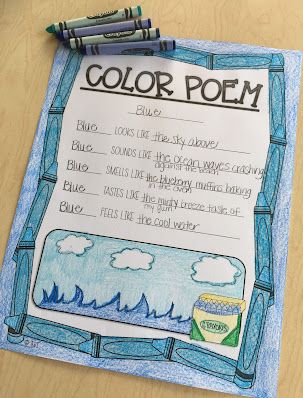 COLOR POEM
Blue
Blue LOOKS LIKE the sky above
Blue SOUNDS LIKE the ocean waves crashing
against the beach
Blue SMELLS LIKE the blueberry muffins baking
in the oven
Blue TASTES LIKE the minty breeze taste of
my gum
Blue FEELS LIKE the cool water